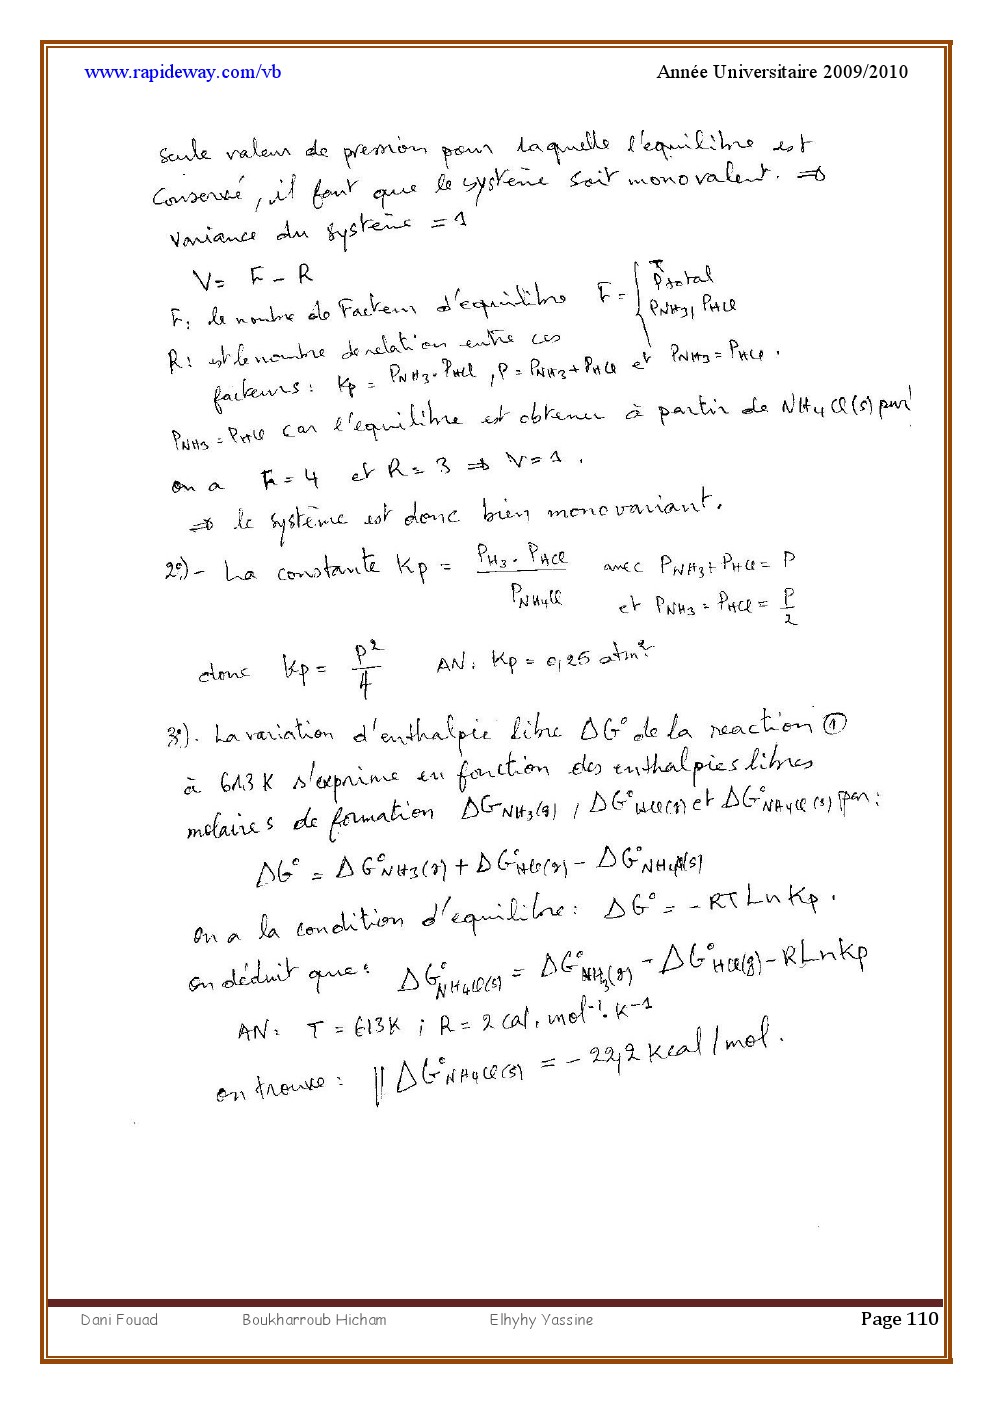 www.rapideway.com/vb Année Universitaire 2009/2010
seule valeur de pression pour laquelle l'équilibre est
conservé, il faut que le système soit monovalent. ⇒
variance du système = 1
V = F - R
F: le nombre de Facteur d'équilibre F = { T, Ptotal, PNH3, PHCl
R: est le nombre de relation entre ces
facteurs: Kp = PNH3 . PHCl, P = PNH3 + PHCl et PNH3 = PHCl.
PNH3 = PHCl car l'équilibre est obtenu à partir de NH4Cl(s) pur
on a F = 4 et R = 3 ⇒ V = 1.
⇒ le système est donc bien monovariant.
2°)- La constante Kp = PH3 . PHCl / PNH4Cl avec PNH3 + PHCl = P
et PNH3 = PHCl = P/2
donc Kp = P²/4 AN: Kp = 0,25 atm²
3°). La variation d'enthalpie libre ΔG° de la reaction ①
à 613K s'exprime en fonction des enthalpies libres
molaires de formation ΔGNH3(g), ΔG°HCl(g) et ΔG°NH4Cl(s) par:
ΔG° = ΔG°NH3(g) + ΔG°HCl(g) - ΔG°NH4Cl(s)
on a la condition d'equilibre: ΔG° = -RT Ln Kp.
on déduit que: ΔG°NH4Cl(s) = ΔG°NH3(g) - ΔG°HCl(g) - R Ln Kp
AN: T = 613K ; R = 2 cal. mol⁻¹. K⁻¹
on trouve: || ΔG°NH4Cl(s) = - 22,2 Kcal/mol.
Dani Fouad Boukharroub Hicham Elhyhy Yassine Page 110